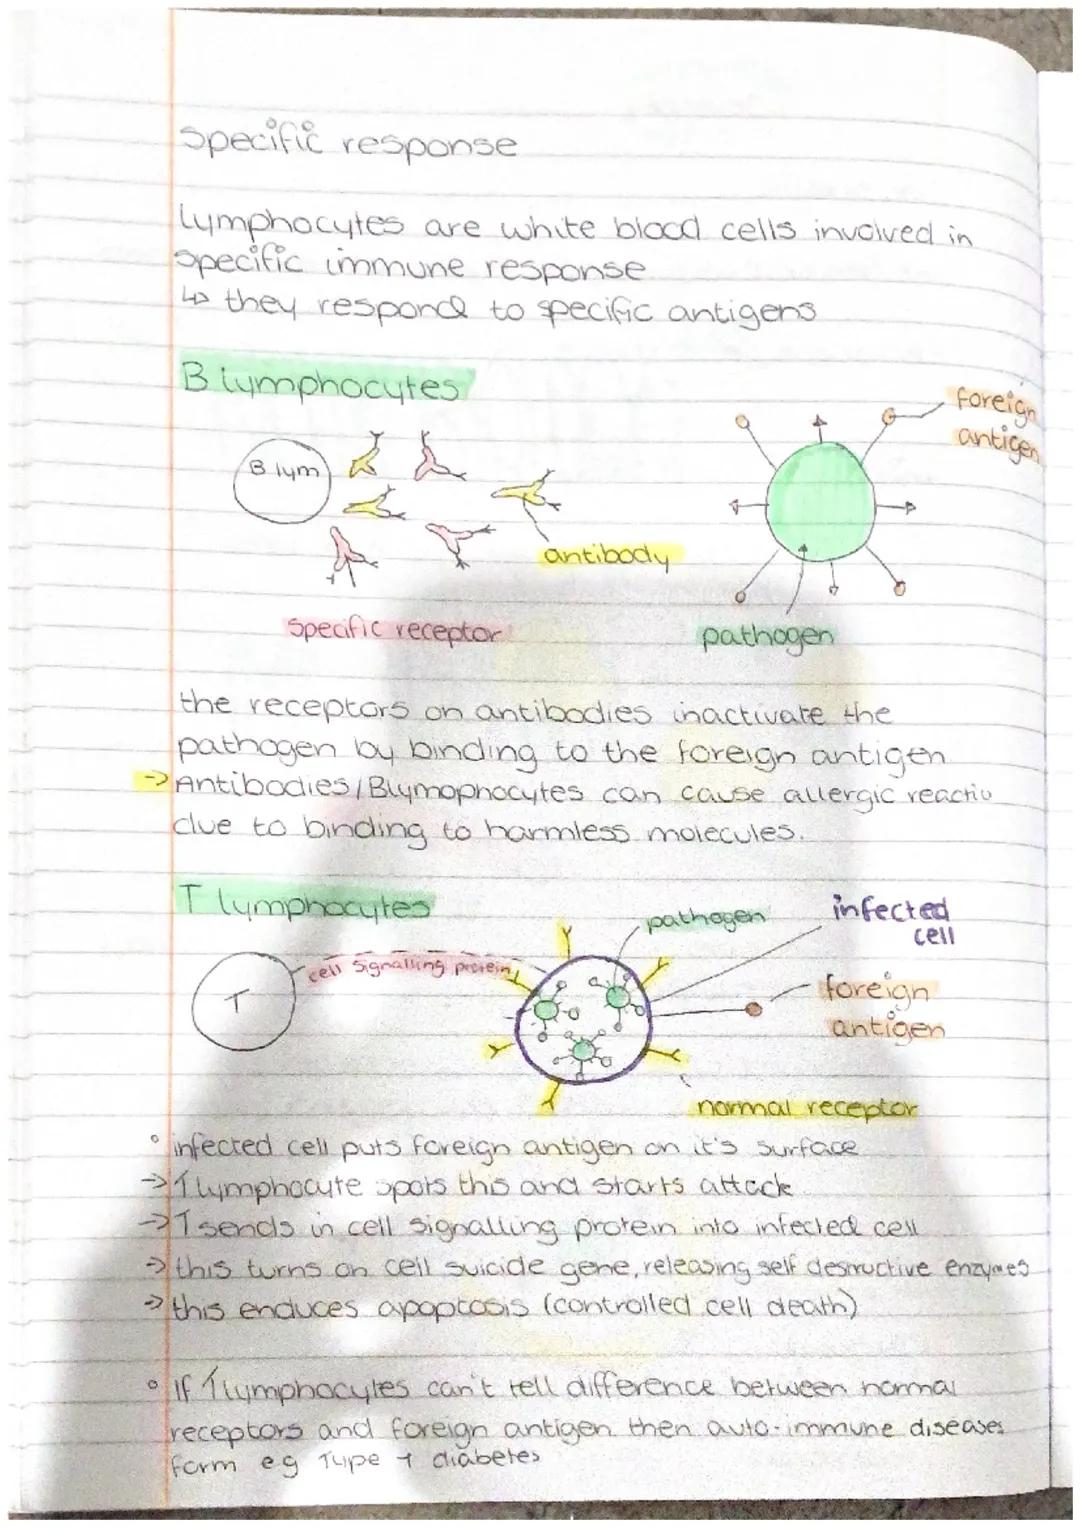 Specific response
Lymphocytes are white blood cells involved in
specific immune response
↳ they respond to specific antigens
B lymphocytes
B lym
foreign
antigen
antibody
specific receptor
pathogen
the receptors on antibodies inactivate the
pathogen by binding to the foreign antigen
→ Antibodies/Blymophocytes can cause allergic reactio
due to binding to harmless molecules.
T lymphocytes
pathogen
infected
cell
T
cell signalling protein
foreign
antigen
normal receptor
° infected cell puts foreign antigen on it's surface
→ T lymphocyte spots this and starts attack
→ T sends in cell signalling protein into infected cell
→ this turns on cell suicide gene, releasing self destructive enzymes
→ this enduces apoptosis (controlled cell death)
° If T lymphocytes can't tell difference between normal
receptors and foreign antigen then auto-immune diseases
form eg Type 1 diabetes